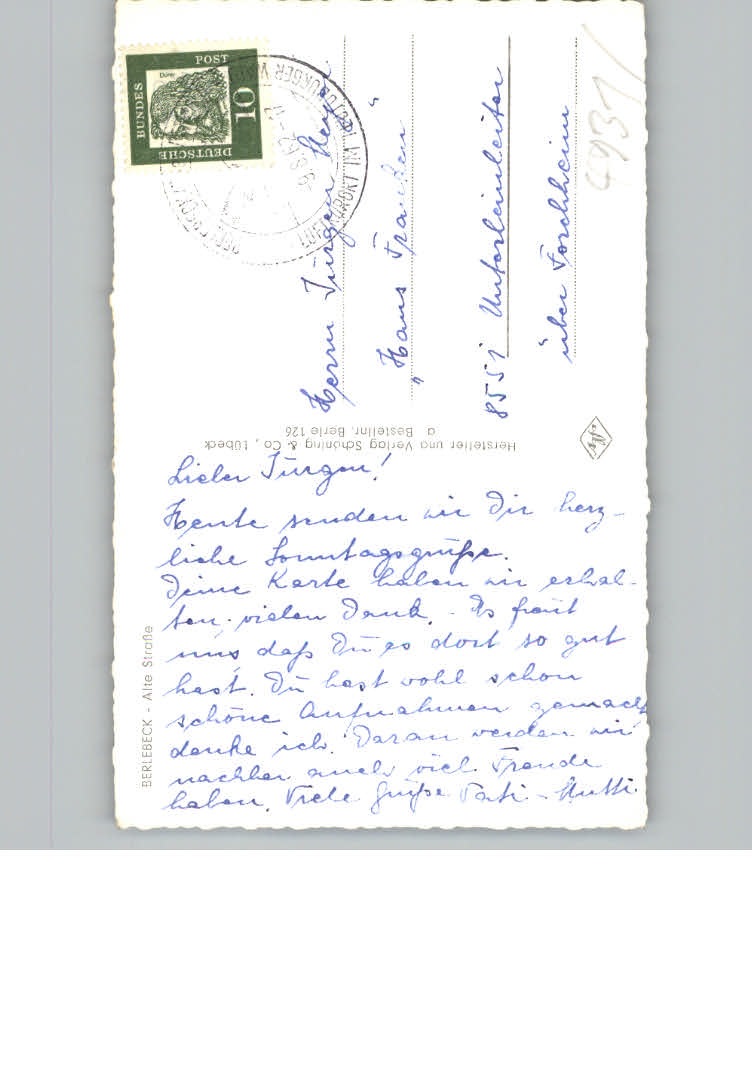 Lieber Jürgen!
Heute senden wir Dir herz-
liche Sonntagsgrüße.
Deine Karte haben wir erhal-
ten, vielen Dank. - Es freut
uns daß Du es dort so gut
hast. Du hast wohl schon
schöne Aufnahmen gemacht
denke ich. Daran werden wir
nachher auch viel Freude
haben. Viele Grüße Vati - Mutti.
BERLEBECK - Alte Straße
Hersteller und Verlag Schöning & Co., Lübeck
a Bestellnr. Berle 126
Herrn Jürgen
"Haus Franken"
8551 Unterleinleiter
über Forchheim
DEUTSCHE
BUNDES
POST
10
Dürer
LUFTKURORT
4937/